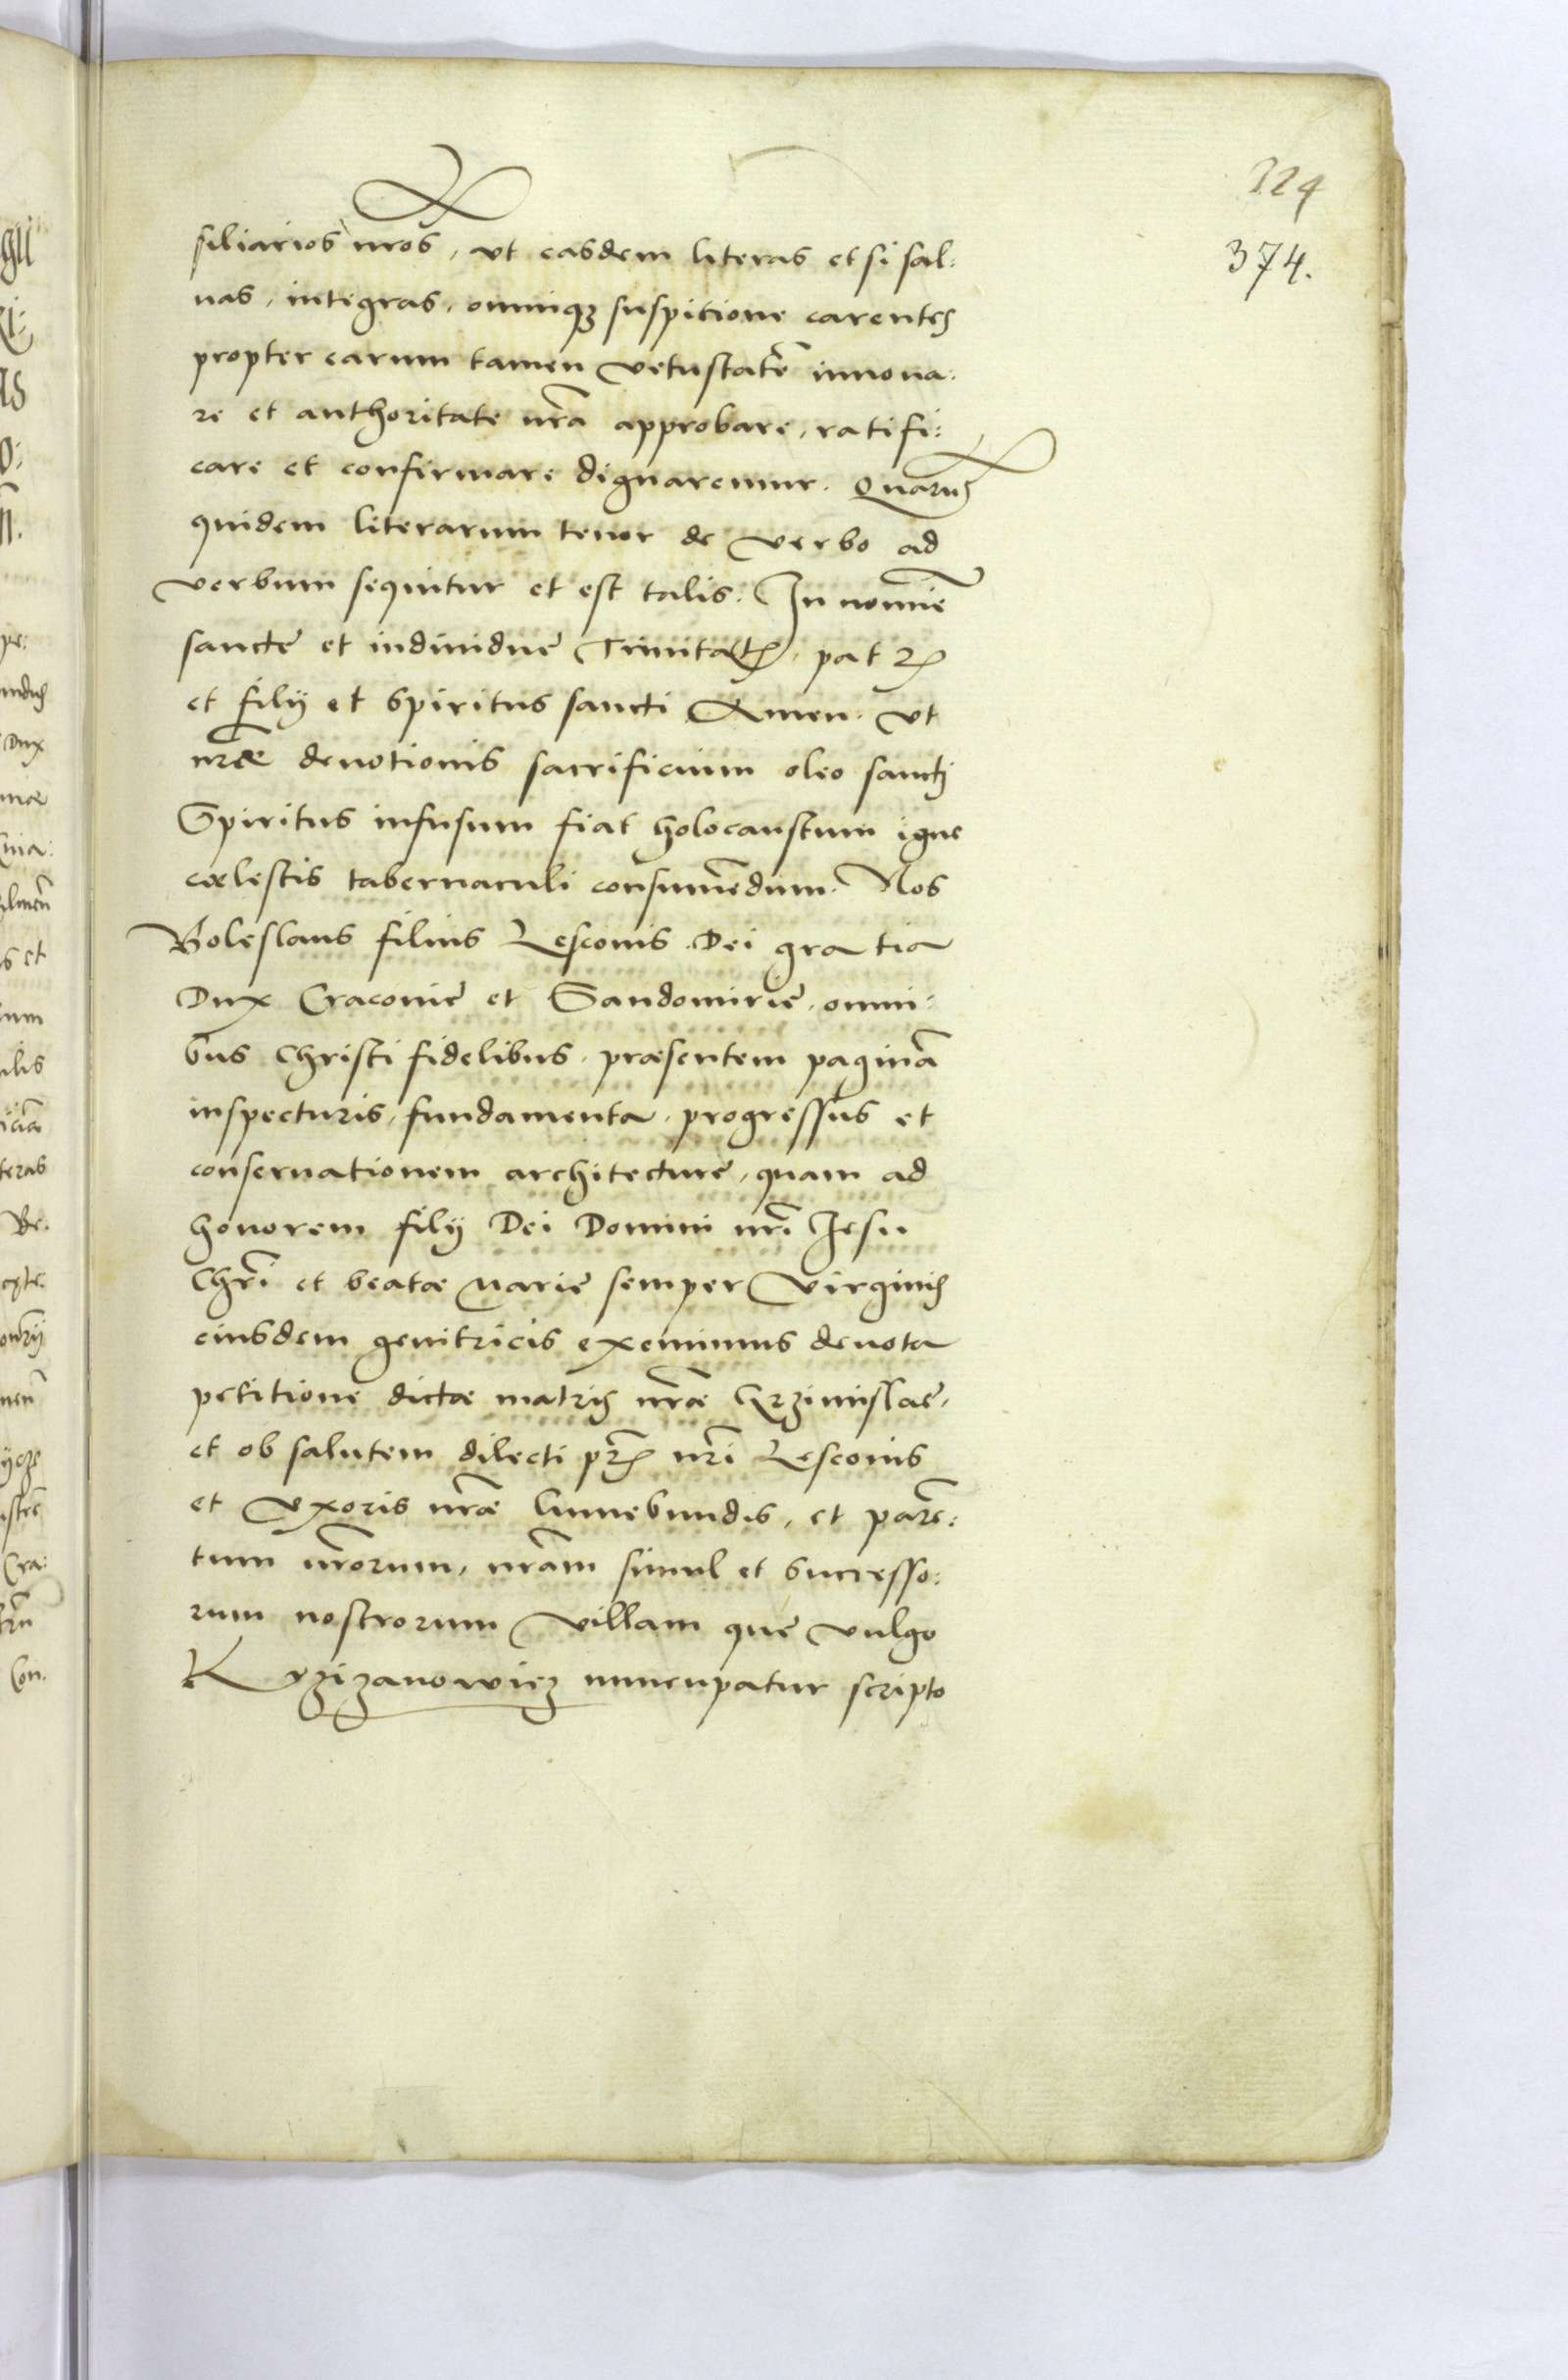 324
374.
siliarios nr̃os, vt easdem literas etsi sal:
uas, integras, omniqȝ suspitione carentes
propter earum tamen vetustatẽ innoua:
re et authoritate nr̃a approbare, ratifi:
care et confirmare dignaremur. Quarum
quidem literarum tenor de verbo ad
verbum sequitur et est talis. In nomĩe
sanctę et indiuiduę Trinitatis, patris
et filij et Spiritus sancti Amen. Vt
nr̃æ deuotionis sacrificium oleo sancti
Spiritus infusum fiat holocaustum igne
cœlestis tabernaculi consumẽdum. Nos
Boleslaus filius Lesconis Dei gratia
Dux Cracouię et Sandomirię, omni:
bus Christi fidelibus, præsentem paginã
inspecturis, fundamenta, progressus et
conseruationem architecturę, quam ad
honorem filij Dei Domini nr̃i Jesu
Chr̃i et beatæ Marię semper Virginis
eiusdem genitricis exemimus deuota
petitione dictæ matris nr̃æ Grzimislaę,
et ob salutem dilecti pr̃is nr̃i Lesconis
et Vxoris nr̃æ Cunebundis, et parẽ:
tum nr̃orum, nr̃am simul et successo:
rum nostrorum villam quę vulgo
Krzizanowicz nuncupatur scripto